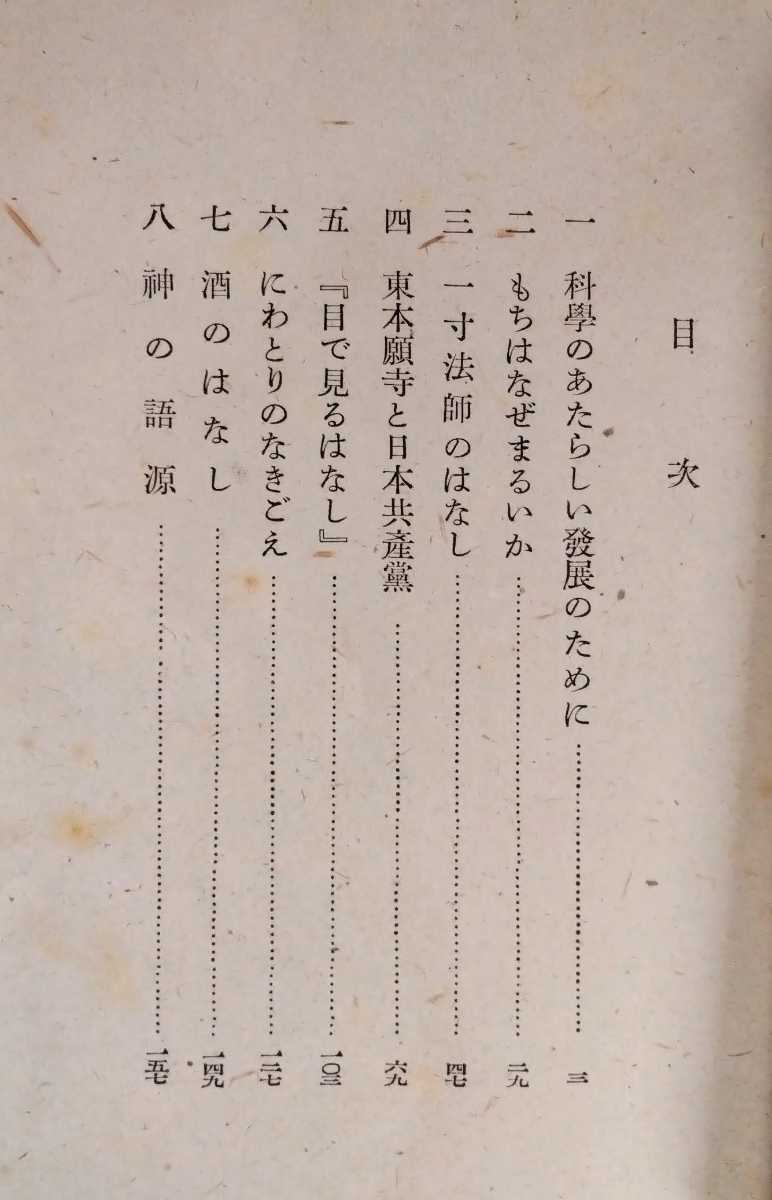 目次
一 科學のあたらしい發展のために……三
二 もちはなぜまるいか……二九
三 一寸法師のはなし……四七
四 東本願寺と日本共產黨……六九
五 『目で見るはなし』……一〇三
六 にわとりのなきごえ……一二七
七 酒のはなし……一四九
八 神の語源……一五七